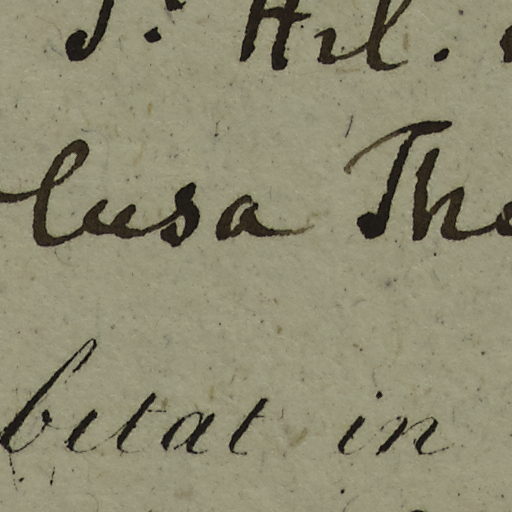 J: Hil.
lusa Tho
bitat in